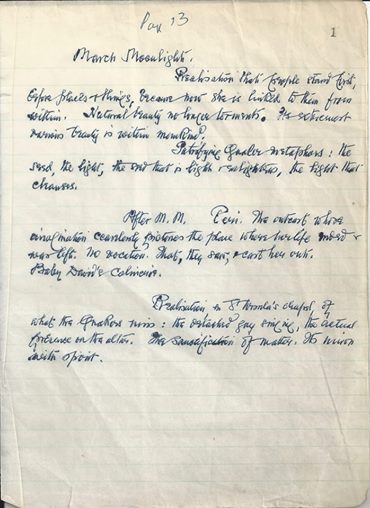 Pax 13
1
March Moonlight.
Realisation that people stand first,
before places & things, because now she is linked to them from
within. Natural beauty no longer torments. Its outermost
beauty is within mankind.
Quaker metaphors: the
seed, the light, the and that is light & enlightens, the light that
cleanses.
After M.M. The outcast whose
imagination constantly the place where her life ended &
was left. No vocation. That, they saw, & cast her out.
Realisation in St 's chapel of
what the Quakers miss: the detached gay singing, the actual
presence on the altar. The sanctification of matter. Its union
with spirit.